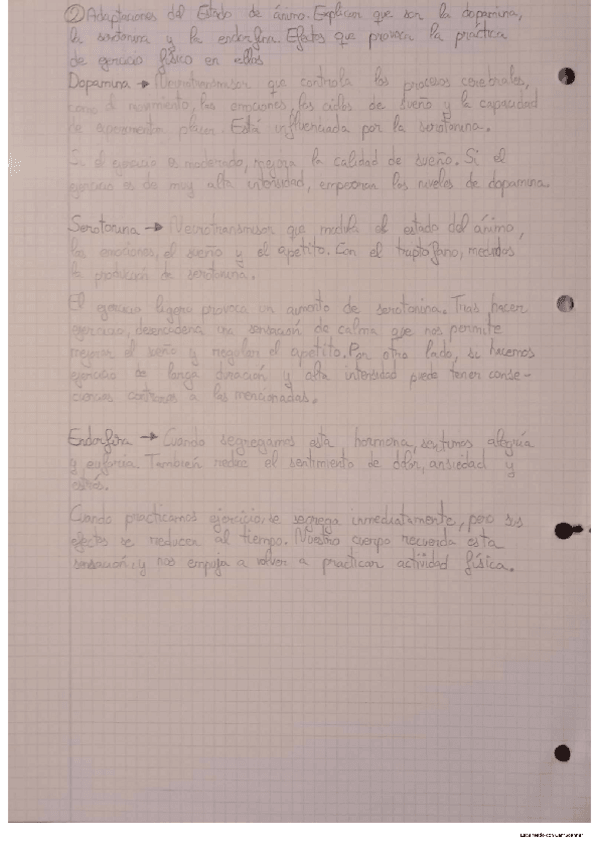 ② Adaptaciones del Estado de ánimo. Explican que son la dopamina,
la serotonina y la endorfina. Efectos que provocan la práctica
de ejercicio físico en ellas
Dopamina → Neurotransmisor que controla los procesos cerebrales,
como el movimiento, las emociones, los ciclos de sueño y la capacidad
de experimentar placer. Está influenciada por la serotonina.
Si el ejercicio es moderado, mejora la calidad de sueño. Si el
ejercicio es de muy alta intensidad, empeoran los niveles de dopamina
Serotonina → Neurotransmisor que modula el estado del ánimo,
las emociones, el sueño y el apetito. Con el triptófano,
la producción de serotonina.
El ejercicio ligero provoca un aumento de serotonina. Tras hacer
ejercicio, desencadena una sensación de calma que nos permite
mejorar el sueño y regular el apetito. Por otro lado, si hacemos
ejercicio de larga duración y alta intensidad puede tener conse-
cuencias contrarias a las mencionadas.
Endorfina → Cuando segregamos esta hormona, sentimos alegría
y euforia. También reduce el sentimiento de dolor, ansiedad y
estrés.
Cuando practicamos ejercicio, se segrega inmediatamente, pero sus
efectos se reducen al tiempo. Nuestro cuerpo recuerda esta
sensación, y nos empuja a volver a practicar actividad física.